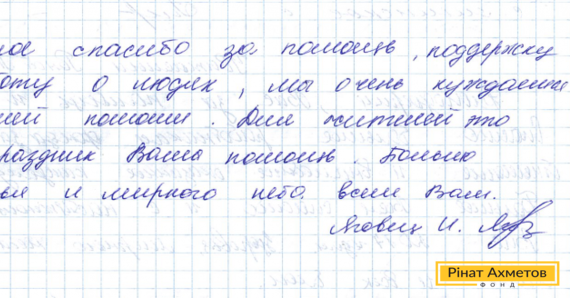 ое спасибо за помощь, поддержку
оту о людях, мы очень нуждаемся
ей помощи. Для жителей это
раздник Ваша помощь. Больно
ья и мирного неба всем Вам.
И.
Рінат Ахметов
ФОНД